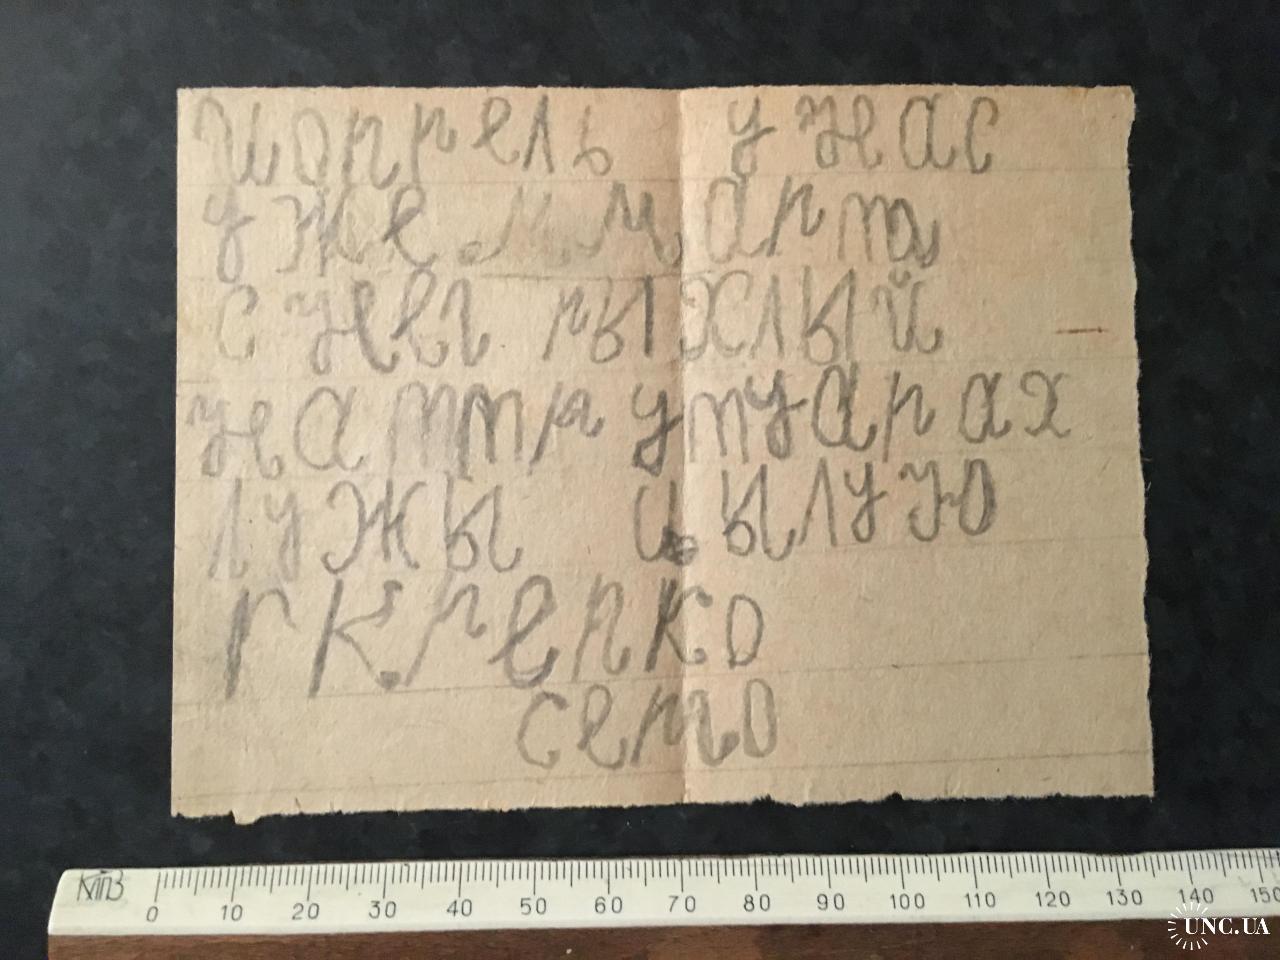 иопрель у нас
уже м март
снег рыхлый
на ттр утуарах
лужы цылую
г крепко
сето
КПВ
0 10 20 30 40 50 60 70 80 90 100 110 120 130 140 150
UNC.UA